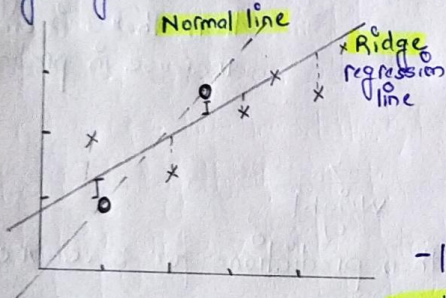 Normal line
Ridge
regression
line
-1